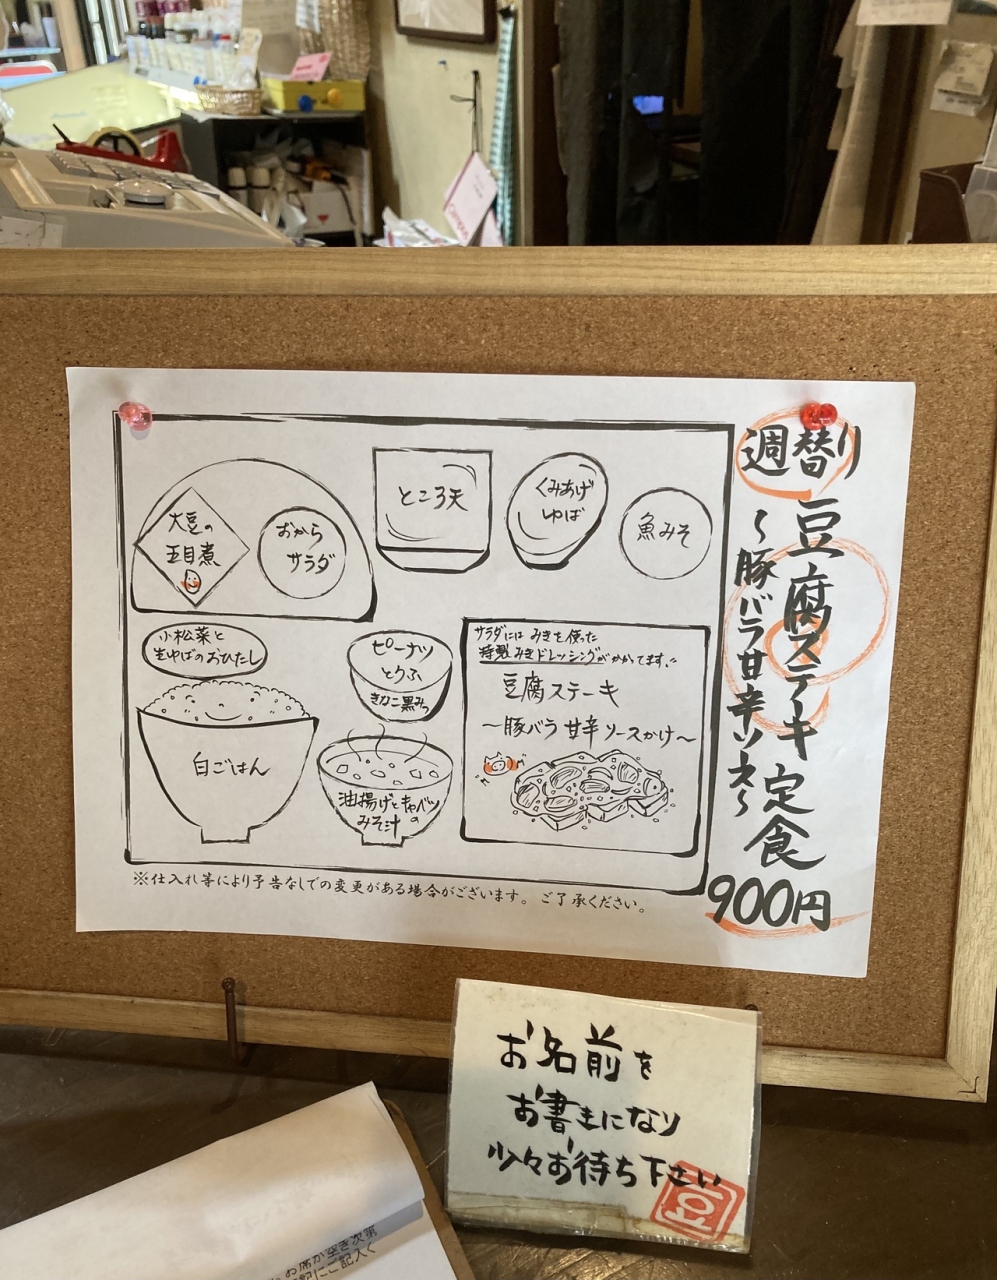 週替り
豆腐ステーキ定食
～豚バラ甘辛ソース～
900円
大豆の
五目煮
おから
サラダ
ところ天
くみあげ
ゆば
魚みそ
小松菜と
生ゆばのおひたし
ピーナツ
とうふ
きなこ黒みつ
白ごはん
油揚げとキャベツの
みそ汁
サラダには みきを使った
特製みきドレッシングがかかてます。
豆腐ステーキ
～豚バラ 甘辛 ソースかけ～
※仕入れ等により予告なしでの変更がある場合がございます。ご了承ください。
お名前を
お書きになり
少々お待ち下さい
豆
お席が空き次第
にご記入く